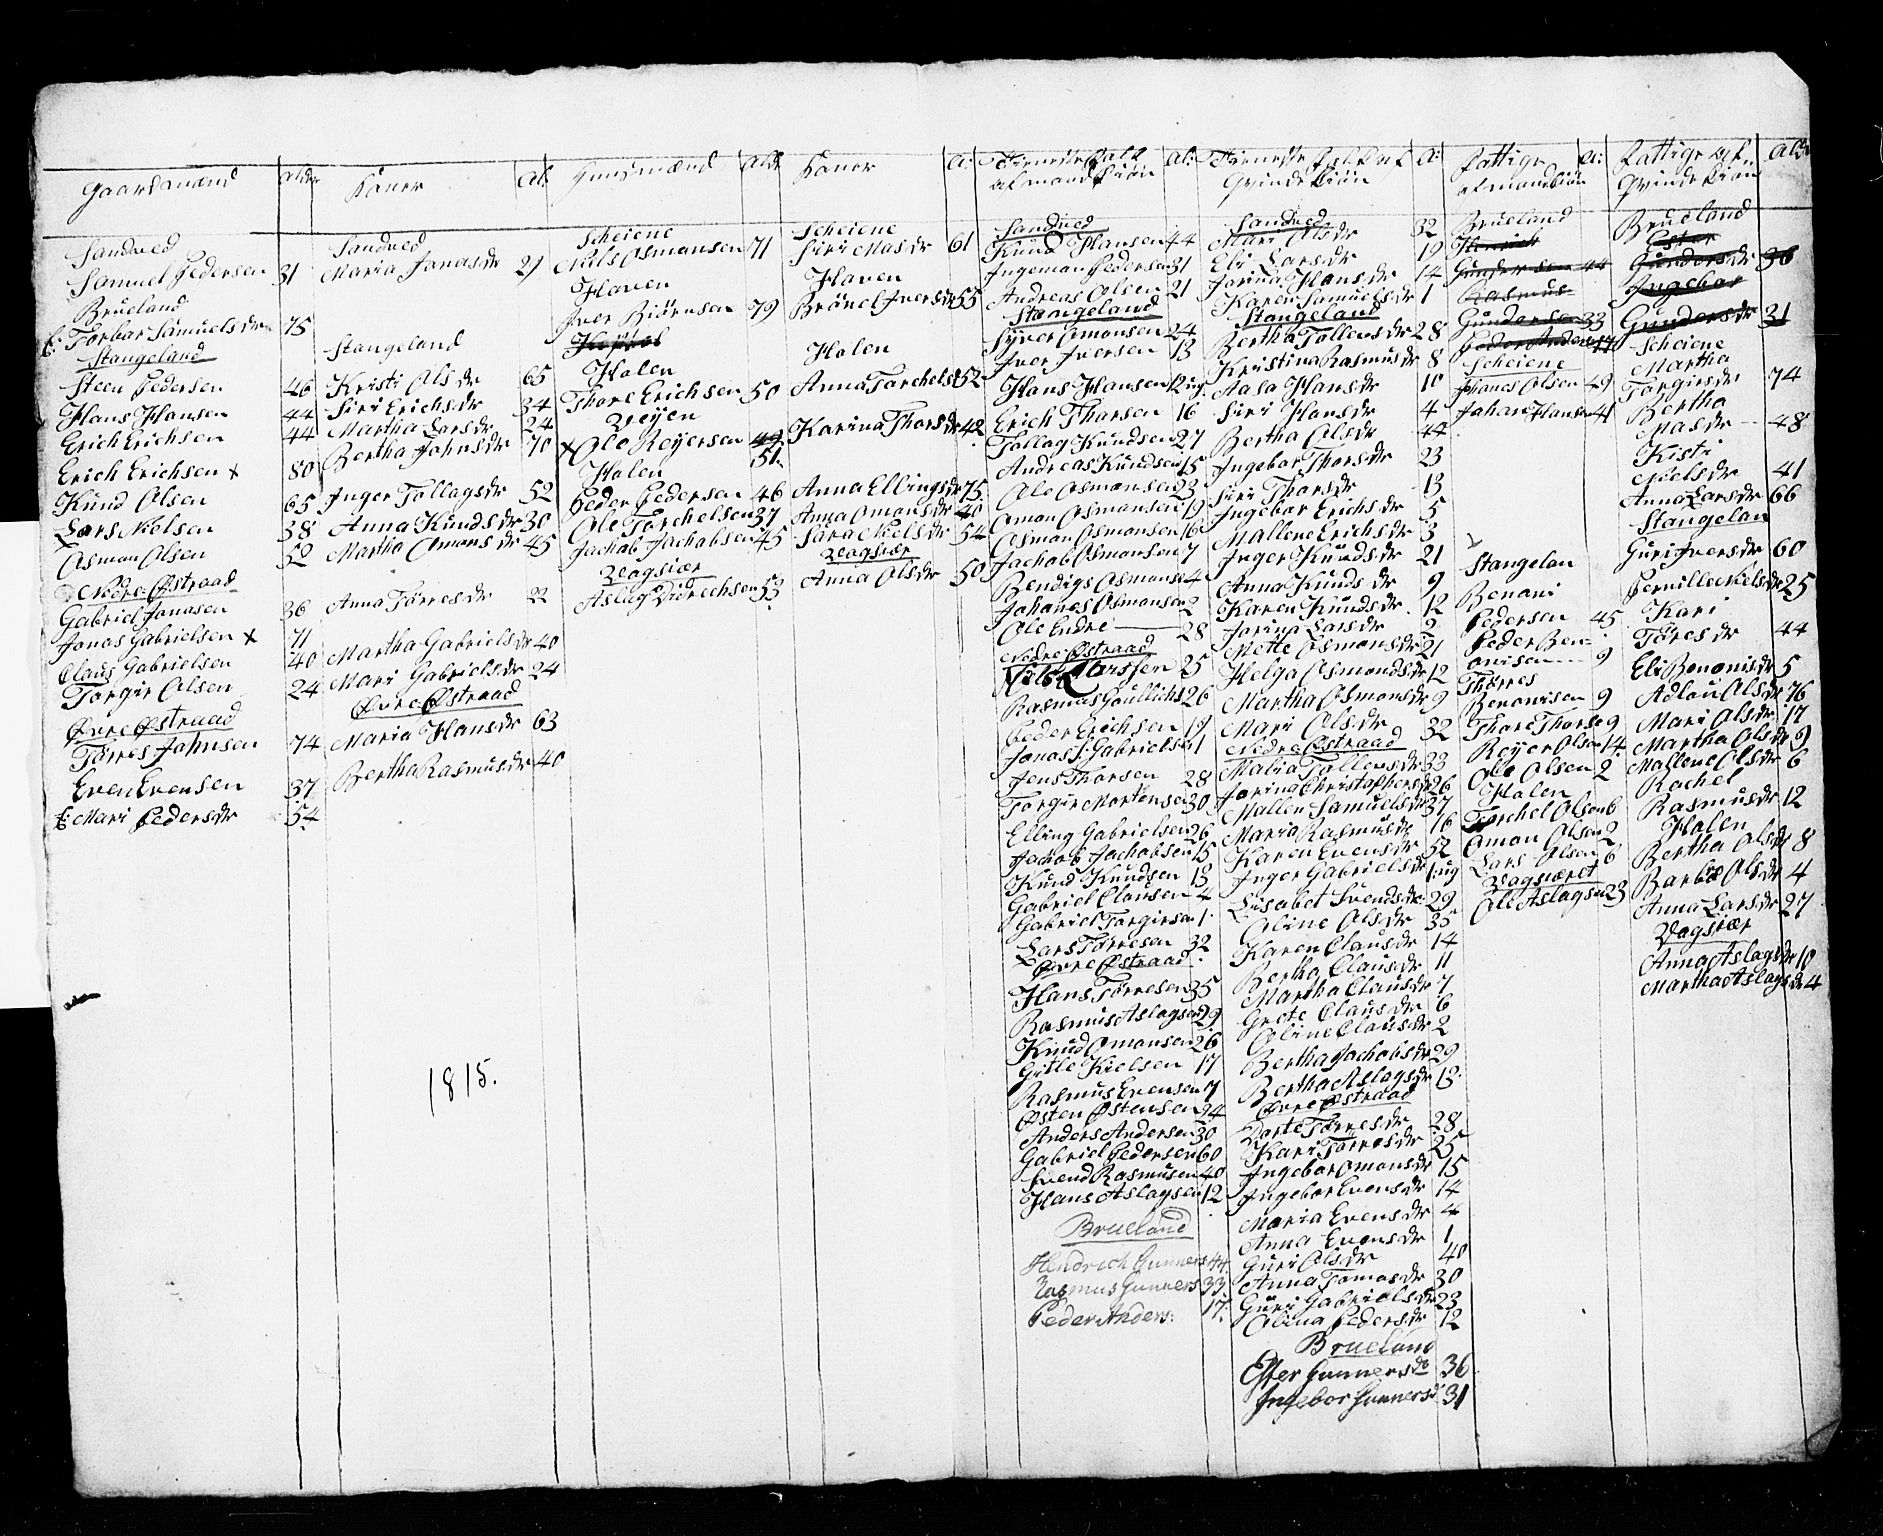 Gaardmænd
Alder
Koner
Al:
Huusmænd
Alder
Koner
A:
Tieneste Folk
af mand Kiøn
Al:
Tieneste Folk af
Qvinde Kiøn
A:
Fattige
af mandkiøn
A:
Fattige af
Qvinde Kiøn
Alder
Sandved
Samuel Pedersen 31
Brueland
E: Torbor Samuelsdr 75
Stangeland
Steen Pedersen 46
Hans Hansen 44
Erich Erichsen 44
Erich Erichsen x 80
Knud Olsen 65
Lars Nielsen 38
Osmon Olsen 52
Nedre Østraad
Gabriel Jonasen 36
Jonas Gabrielsen x 71
Claus Gabrielsen 40
Torgir Olsen 24
Øvre Østraad
Tørres Johnsen 74
Even Evensen 37
E: Mari Pedersdr 54
Sandved
Maria Jonasdr 29
Stangeland
Kristi Olsdr 65
Siri Erichsdr 34
Martha Larsdr 24
Bertha Johnsdr 70
Inger Tollagsdr 52
Anna Knudsdr 30
Martha Omonsdr 45
Anna Tørresdr 22
Martha Gabrielsdr 40
Mari Gabrielsdr 24
Øvre Østraad
Maria Hansdr 63
Bertha Rasmusdr 40
1815.
Scheiene
Niels Osmonsen 71
Haven
Iver Biörnsen 79
Holen
Thore Erichsen 50
Veyen
x Ole Reyersen 49
51
Holen
Peder Pedersen 46
Ole Torchelsen 37
Jachob Jachobsen 45
Vagsiær
Aslag Didrechsen 53
Scheiene
Siri Masdr 61
Haven
Brønel Iversdr 55
Holen
Anna Torchelsd 52
Karina Thorsdr 42
Anna Ellingsdr 75
Anna Omonsdr 40
Sara Nielsdr 54
Vagsiær
Anna Olsdr 50
Sandved
Knud Hansen 44
Ingemon Pedersen 31
Andreas Olsen 21
Stangeland
Syver Omonsen 24
Iver Iversen 13
Hans Hansen 12 ug
Erich Thorsen 16
Tollag Knudsen 27
Andreas Knudsen 15
Ole Osmonsen 23
Omon Osmonsen 19
Osmon Osmonsen 16
Jachob Osmonsen 7
Bendigt Osmonse 4
Johanes Osmonsen 2
Ole Endre 28
Nedre Østraad
Nils Larssen 25
Rasmus Goullichs 26
Peder Erichsen 19
Jonas S: Gabrielsen 1
Jens Thorsen 28
Torgir Mortensen 30
Elling Gabrielsen 26
Jachob Jachobsen 15
Knud Knudsen 13
Gabriel Clausen 4
Gabriel Torgirsen 1
Lars Tørresen 32
Øvre Østraad
Hans Tørresen 35
Rasmus Aslagsen 29
Knud Omonsen 26
Gitle Kielsen 17
Rasmus Evensen 7
Østen Østensen 24
Anders Andersen 30
Gabriel Pedersen 60
Svend Rasmusen 40
Hans Aslagsen 12
Brueland
Hendrich Gunners 44
Rasmus Gunners 33
Peder Anders: 17
Sandved
Mari Olsdr 32
Eli Larsdr 19
Jorina Hansdr 14
Karen Samuelsdr 1
Stangeland
Bertha Tollevsdr 28
Kristina Rasmusdr 8
Aasa Hansdr 10
Siri Hansdr 4
Bertha Olsdr 44
Ingebor Thorsdr 23
Siri Thorsdr 13
Ingebor Erichsdr 5
Mallene Erichsdr 3
Inger Knudsdr 21
Anna Knudsdr 9
Karen Knudsdr 12
Jorina Larsdr 2
Mette Osmonsdr 21
Helga Osmondsdr 12
Martha Osmonsdr 9
Mari Olsdr 32
Nedre Østraad
Malia Tollevsdr 33
Jorina Christophersdr 26
Mallen Samuelsdr 37
Maria Rasmusdr 16
Karen Evensdr 52
Inger Gabrielsdr 1 ug
Lisabet Svendsdr 29
Oline Olsdr 35
Karen Clausdr 14
Bertha Clausdr 11
Martha Clausdr 7
Grete Clausdr 6
Oline Clausdr 2
Bertha Jachobsdr 29
Bertha Aslagsdr 13
Øvre Østraad
Dorte Tørresdr 28
Kari Tørresdr 25
Ingebor Omonsdr 15
Ingebor Evensdr 14
Maria Evensdr 4
Anna Evensdr 1
Guri Olsdr 40
Anna Tomasdr 30
Guri Gabrielsdr 23
Olina Pedersdr 12
Brueland
Ester Gunnersdr 36
Ingebor Gunnersd 31
Brueland
Henrich
Gundersen 44
Rasmus
Gundersen 33
Peder Anders 17
Scheiene
Hanes Olsen 49
Johan Hansen 41
Stangelan
Benoni
Pedersen 45
Peder Ben-
onisen 9
Thørres
Benonisen 9
Thore Thorse 9
Reyer Olsen 14
Ole Olsen 2
Holen
Torchel Olsen 6
Omon Olsen 2
Lars Olsen 6
Vagsiæret
Ole Aslagsen 23
Brueland
Ester
Gundersdr 36
Ingebor
Gundersdr 31
Scheiene
Martha
Torgirsdr 74
Bertha
Masdr 48
Kisti
Nielsdr 41
Anna Larsdr 66
Stangelan
Guri Iversdr 60
Pernille Nielsdr 25
Kari
Tøresdr 44
Eli Benonisdr 5
Adlou Olsdr 76
Mari Olsdr 17
Martha Olsdr 9
Mallene Olsdr 6
Rachel
Rasmusdr 12
Holen
Bertha Olsdr 8
Barbro Olsdr 4
Anna Larsdr 27
Vagsiær
Anna Aslagsdr 10
Martha Aslagsdr 4